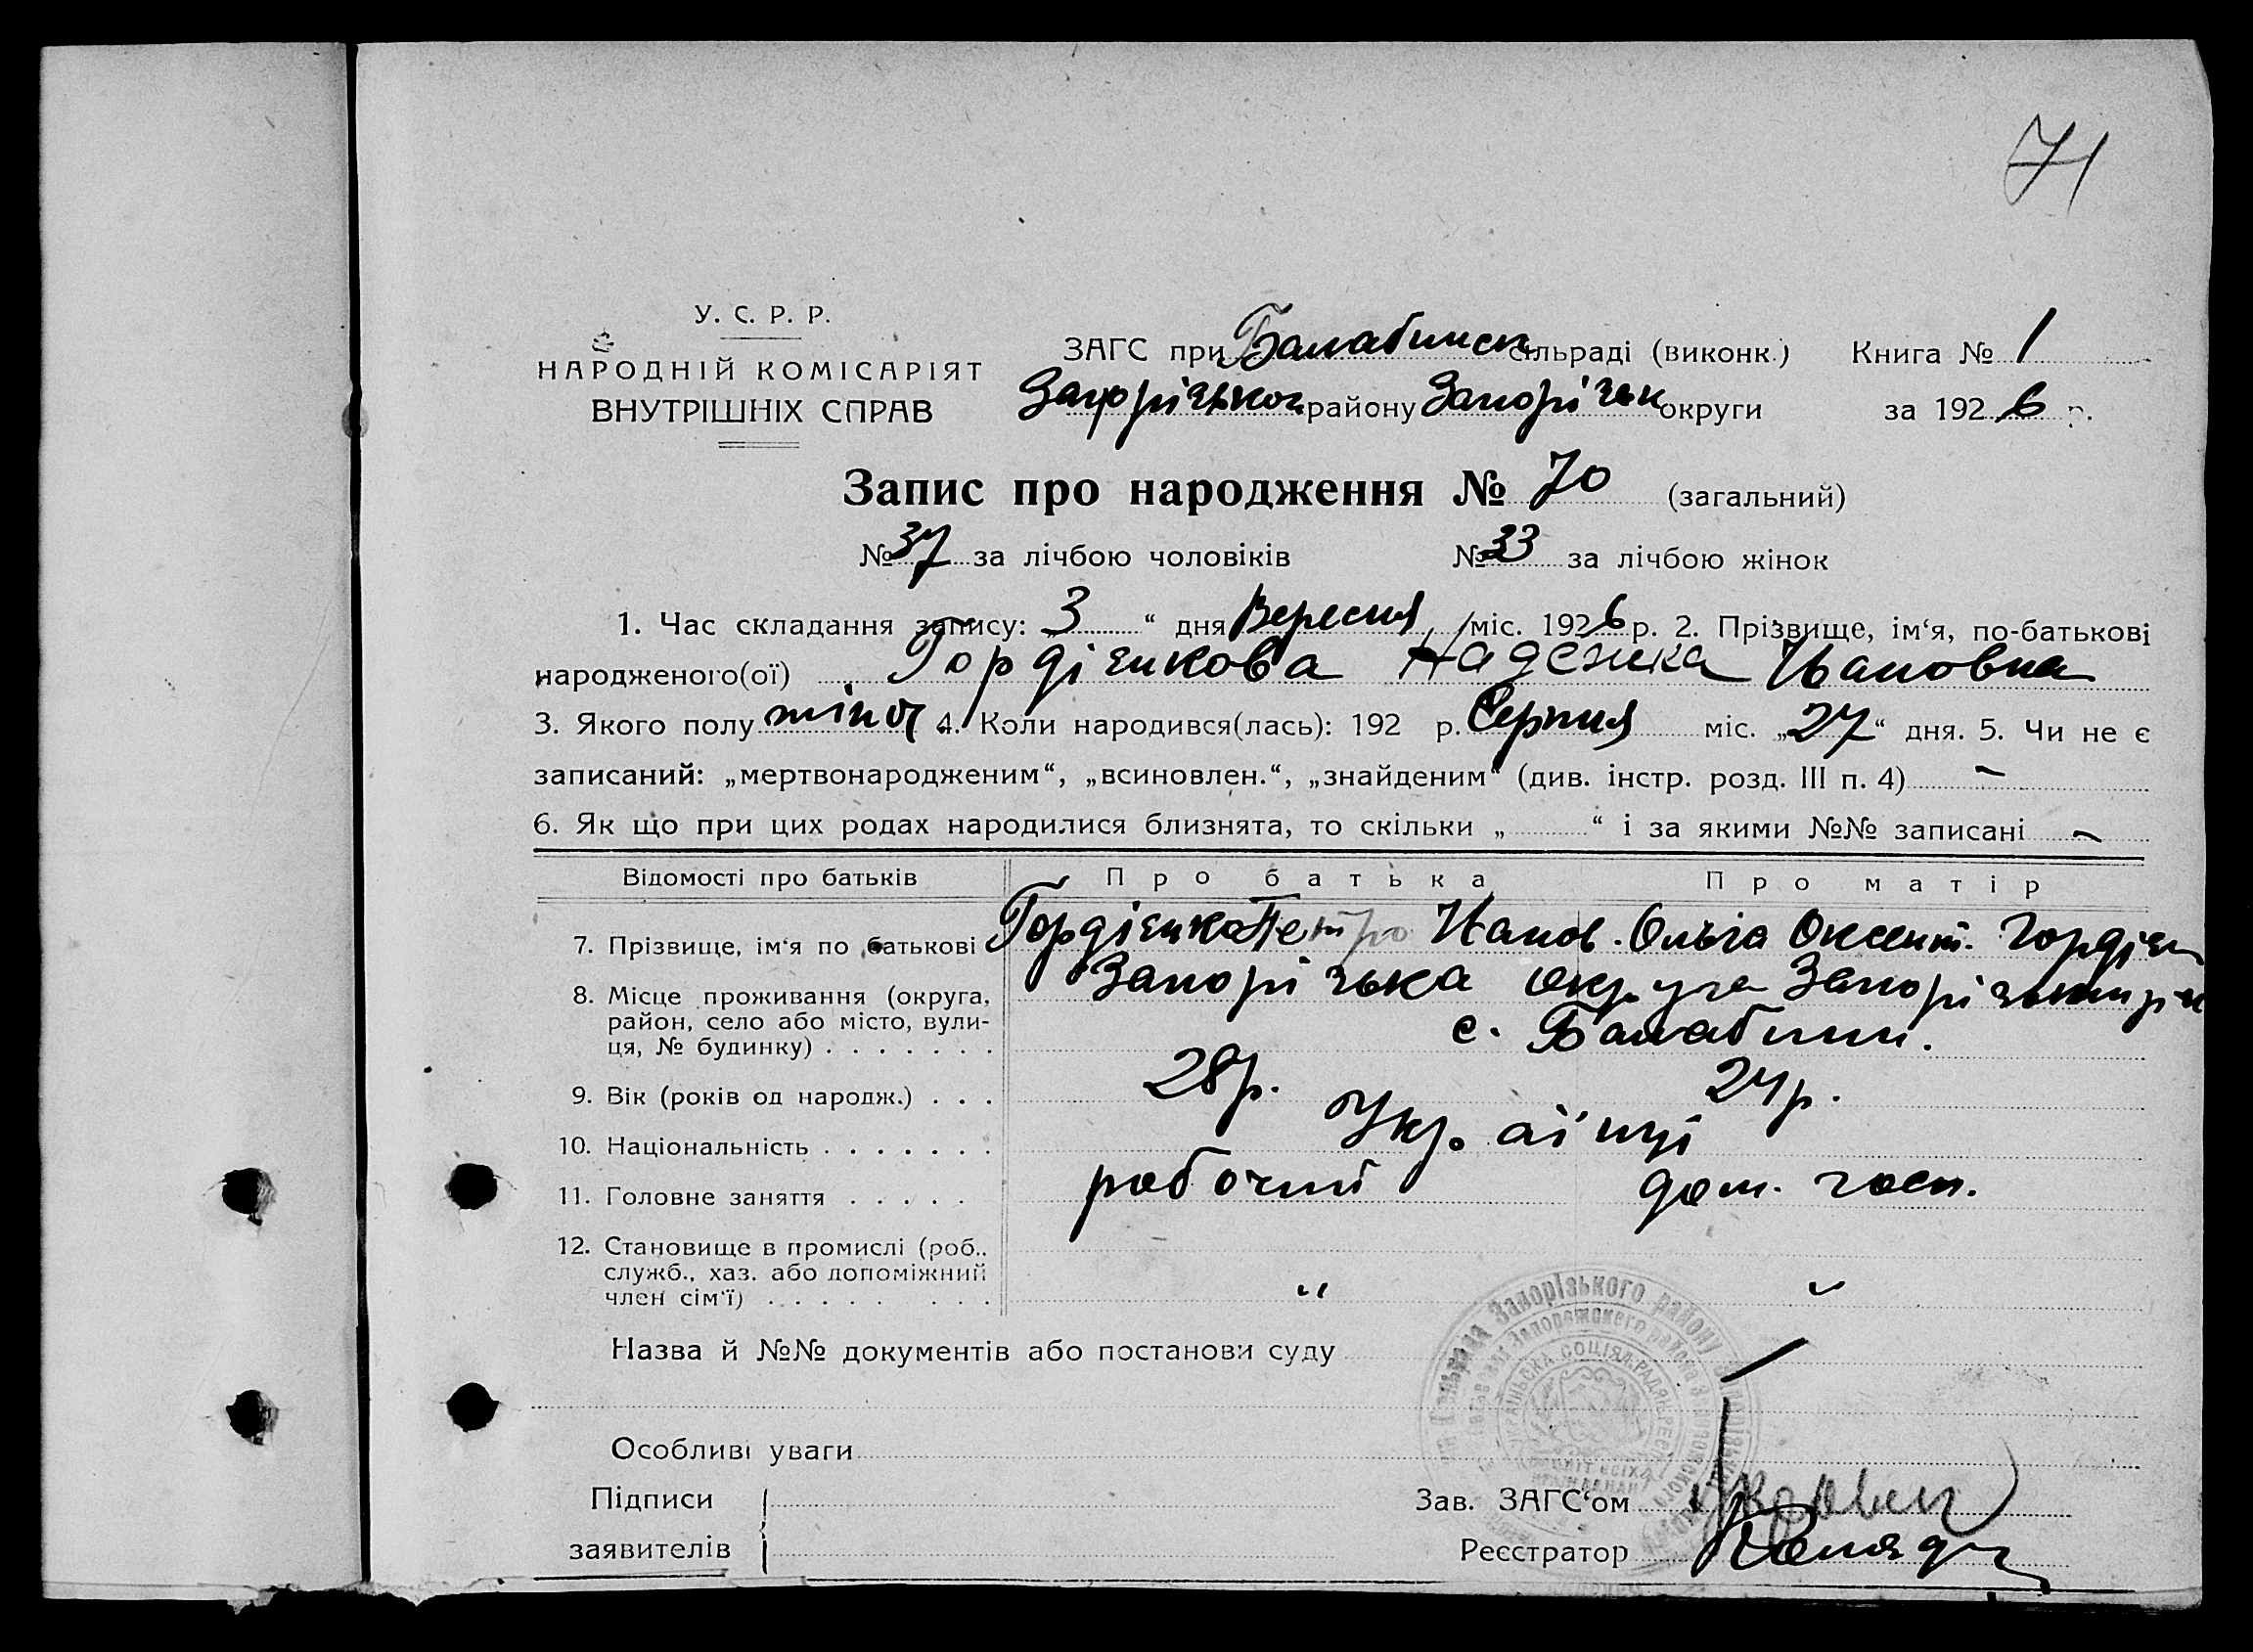 71
У. С. Р. Р.
НАРОДНІЙ КОМІСАРІЯТ
ВНУТРІШНІХ СПРАВ
ЗАГС при Балабинск сільраді (виконк.) Книга № 1
Запорізьког району Запорізьк округи за 1926 р.
Запис про народження № 70 (загальний)
№ 37 за лічбою чоловіків № 33 за лічбою жінок
1. Час складання запису: 3 “ дня Вересня міс. 1926 р. 2. Прізвище, ім‘я, по-батькові
народженого(ої) Гордієнкова Надежка Ивановна
3. Якого полу жіноч 4. Коли народився(лась): 192 р. Серпня міс. „27“ дня. 5. Чи не є
записаний: „мертвонародженим“, „всиновлен.“, „знайденим“ (див. інстр. розд. III п. 4) –
6. Як що при цих родах народилися близнята, то скільки „ “ і за якими №№ записані –
Відомості про батьків Про батька Про матір
7. Прізвище, ім‘я по батькові Гордієнко Петро Иванов. Ольга Оксент. Гордієн
8. Місце проживання (округа, Запорізька округа Запорізький р-н
район, село або місто, вули-
ця, № будинку) . . . . . . . с. Балабини.
9. Вік (років од народж.) . . . 28 р. 24 р.
10. Національність . . . . . . . Українці
11. Головне заняття . . . . . робочий дом. госп.
12. Становище в промислі (роб..
служб., хаз. або допоміжний
член сім‘ї) . . . . . . . . „ „
Назва й №№ документів або постанови суду
Особливі уваги
Підписи
заявителів
Зав. ЗАГС‘ом
Реєстратор
Запорізького району
Запорожского района
УКРАЇНСЬКА СОЦІЯЛ.РАДЯН.РЕСП.